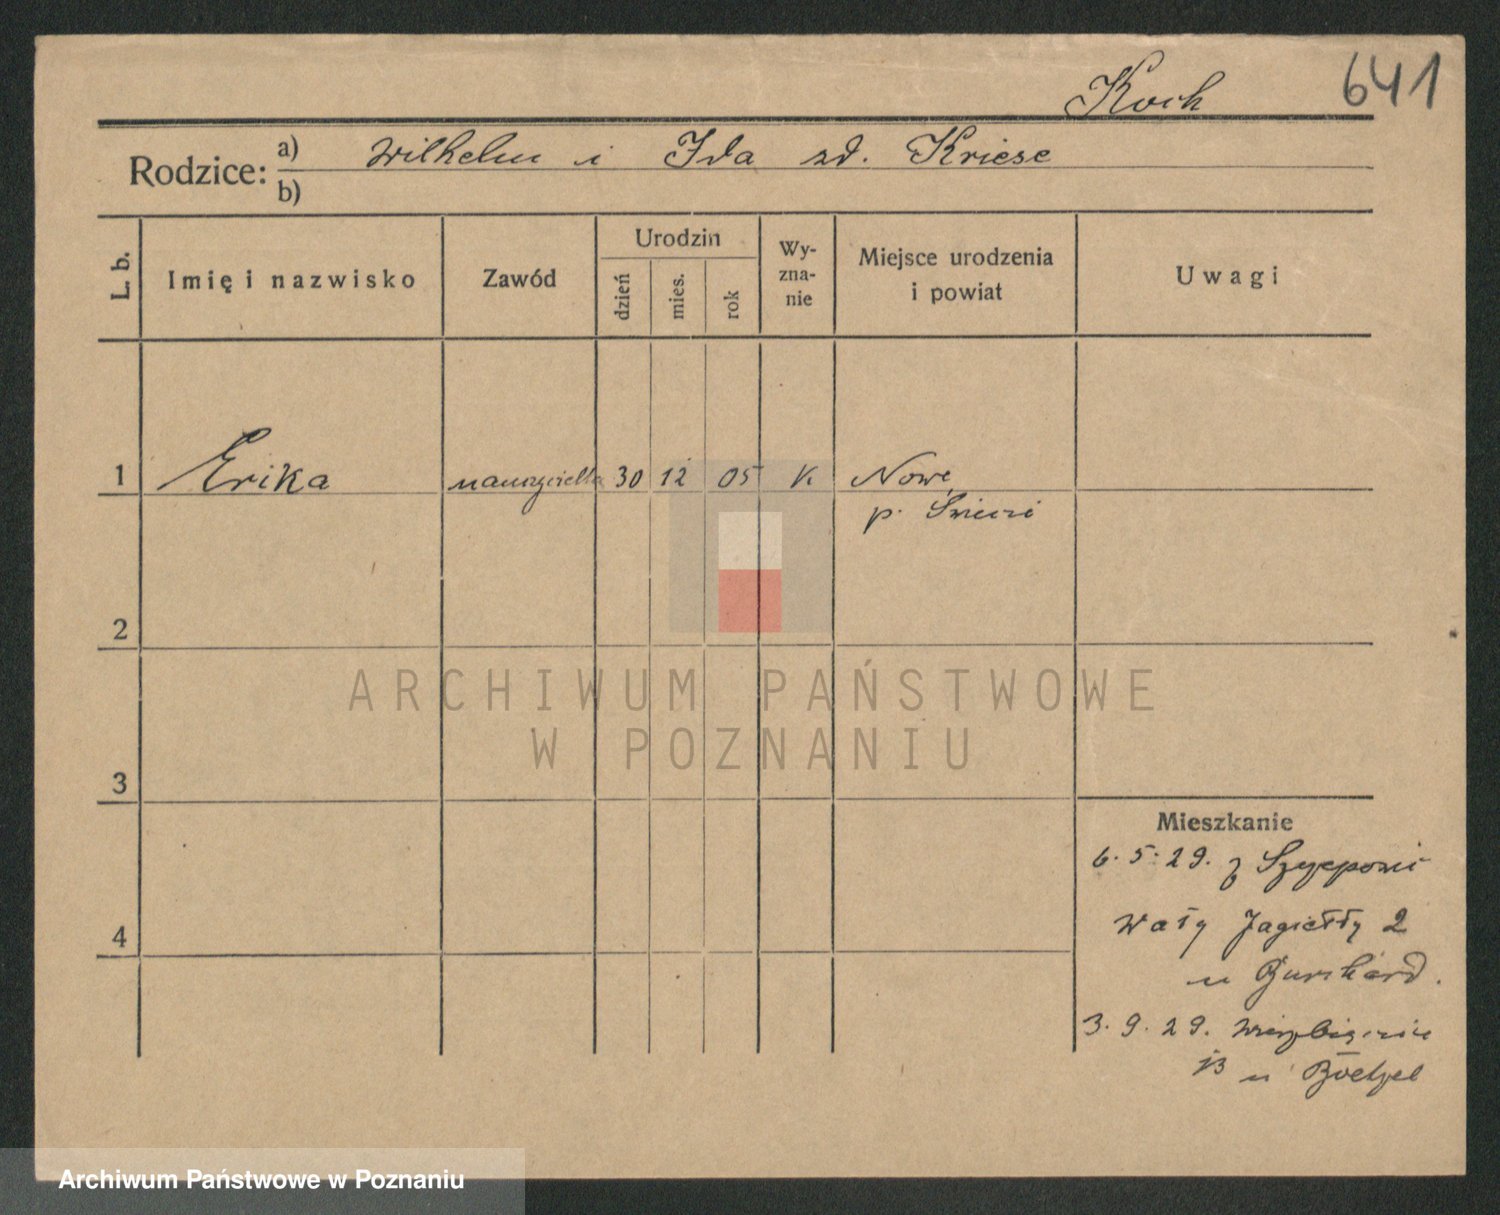 Koch 641
Rodzice: a) Wilhelm i Ida zd. Kriese
b)
L. b. Imię i nazwisko Zawód Urodzin dzień mies. rok Wy-
zna-
nie Miejsce urodzenia
i powiat Uwagi
1 Erika nauczycielka 30 12 05 K Nowe
p. Świecki
2
ARCHIWUM PAŃSTWOWE
W POZNANIU
3
Mieszkanie
6.5.29. z
4 Wały Jagiełły 2
u Burchard.
3.9.29. Wierzbięcice
u Boetzel
Archiwum Państwowe w Poznaniu